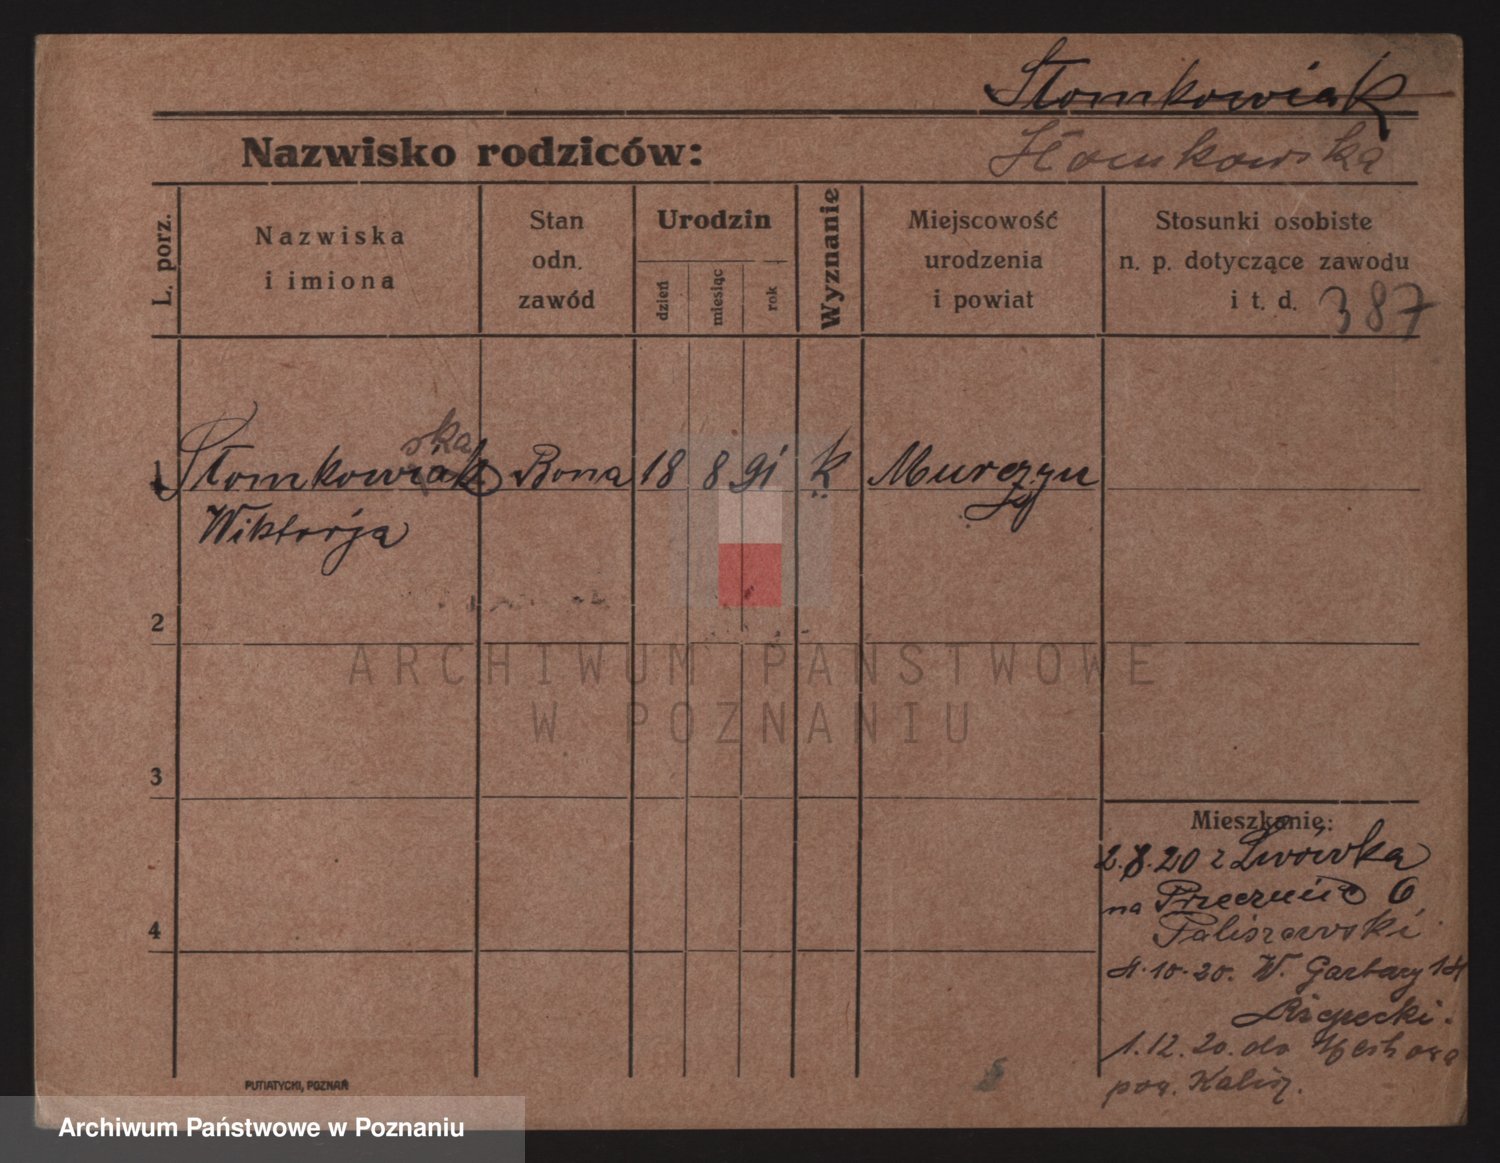 Słomkowiak
Nazwisko rodziców:
Słomkowska
L. porz.
Nazwiska
i imiona
Stan
odn.
zawód
Urodzin
dzień
miesiąc
rok
Wyznanie
Miejscowość
urodzenia
i powiat
Stosunki osobiste
n. p. dotyczące zawodu
i t. d. 387
ska
1 Słomkowiak Bona 18 8 91 k Murczyn
Wiktorja
2
ARCHIWUM PAŃSTWOWE
W POZNANIU
3
Mieszkanie:
2.8.20 z Lwówka
na Przecznic 6
Paliszewski
4.10.20. W. Garbary 14
Rzepecki.
1.12.20. do
pow. Kalisz.
4
PUTIATYCKI, POZNAŃ
Archiwum Państwowe w Poznaniu